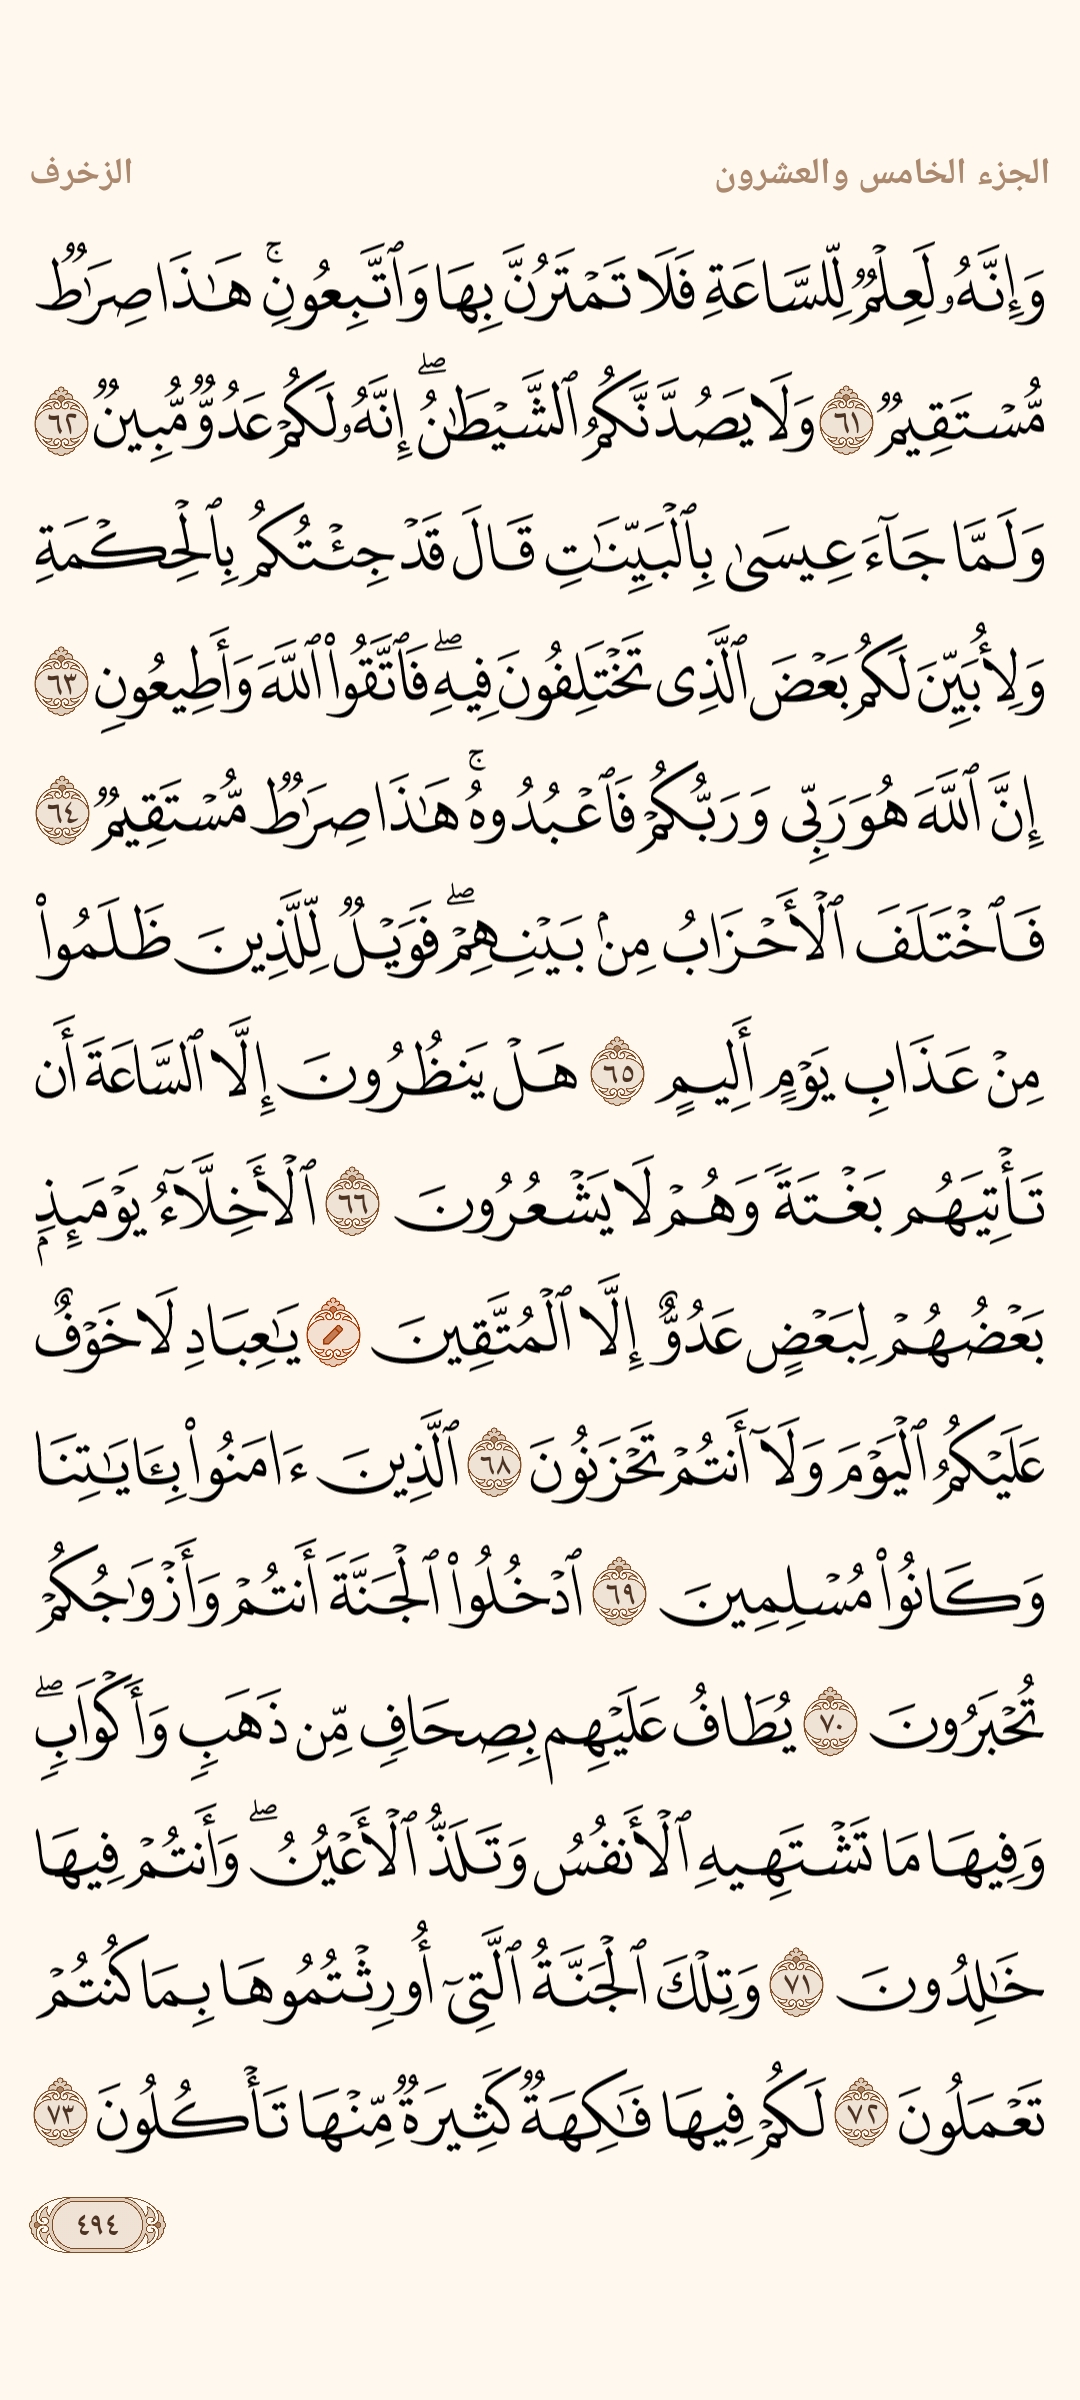 الجزء الخامس والعشرون
الزخرف
وَإِنَّهُۥ لَعِلْمٌ لِّلسَّاعَةِ فَلَا تَمْتَرُنَّ بِهَا وَٱتَّبِعُونِ ۚ هَـٰذَا صِرَٰطٌ
مُّسْتَقِيمٌ ٦١ وَلَا يَصُدَّنَّكُمُ ٱلشَّيْطَـٰنُ ۖ إِنَّهُۥ لَكُمْ عَدُوٌّ مُّبِينٌ ٦٢
وَلَمَّا جَآءَ عِيسَىٰ بِٱلْبَيِّنَـٰتِ قَالَ قَدْ جِئْتُكُم بِٱلْحِكْمَةِ
وَلِأُبَيِّنَ لَكُم بَعْضَ ٱلَّذِى تَخْتَلِفُونَ فِيهِ ۖ فَٱتَّقُوا۟ ٱللَّهَ وَأَطِيعُونِ ٦٣
إِنَّ ٱللَّهَ هُوَ رَبِّى وَرَبُّكُمْ فَٱعْبُدُوهُ ۚ هَـٰذَا صِرَٰطٌ مُّسْتَقِيمٌ ٦٤
فَٱخْتَلَفَ ٱلْأَحْزَابُ مِنۢ بَيْنِهِمْ ۖ فَوَيْلٌ لِّلَّذِينَ ظَلَمُوا۟
مِنْ عَذَابِ يَوْمٍ أَلِيمٍ ٦٥ هَلْ يَنظُرُونَ إِلَّا ٱلسَّاعَةَ أَن
تَأْتِيَهُم بَغْتَةً وَهُمْ لَا يَشْعُرُونَ ٦٦ ٱلْأَخِلَّآءُ يَوْمَئِذٍۭ
بَعْضُهُمْ لِبَعْضٍ عَدُوٌّ إِلَّا ٱلْمُتَّقِينَ يَـٰعِبَادِ لَا خَوْفٌ
عَلَيْكُمُ ٱلْيَوْمَ وَلَآ أَنتُمْ تَحْزَنُونَ ٦٨ ٱلَّذِينَ ءَامَنُوا۟ بِـَٔايَـٰتِنَا
وَكَانُوا۟ مُسْلِمِينَ ٦٩ ٱدْخُلُوا۟ ٱلْجَنَّةَ أَنتُمْ وَأَزْوَٰجُكُمْ
تُحْبَرُونَ ٧٠ يُطَافُ عَلَيْهِم بِصِحَافٍ مِّن ذَهَبٍ وَأَكْوَابٍ ۖ
وَفِيهَا مَا تَشْتَهِيهِ ٱلْأَنفُسُ وَتَلَذُّ ٱلْأَعْيُنُ ۖ وَأَنتُمْ فِيهَا
خَـٰلِدُونَ ٧١ وَتِلْكَ ٱلْجَنَّةُ ٱلَّتِىٓ أُورِثْتُمُوهَا بِمَا كُنتُمْ
تَعْمَلُونَ ٧٢ لَكُمْ فِيهَا فَـٰكِهَةٌ كَثِيرَةٌ مِّنْهَا تَأْكُلُونَ ٧٣
٤٩٤